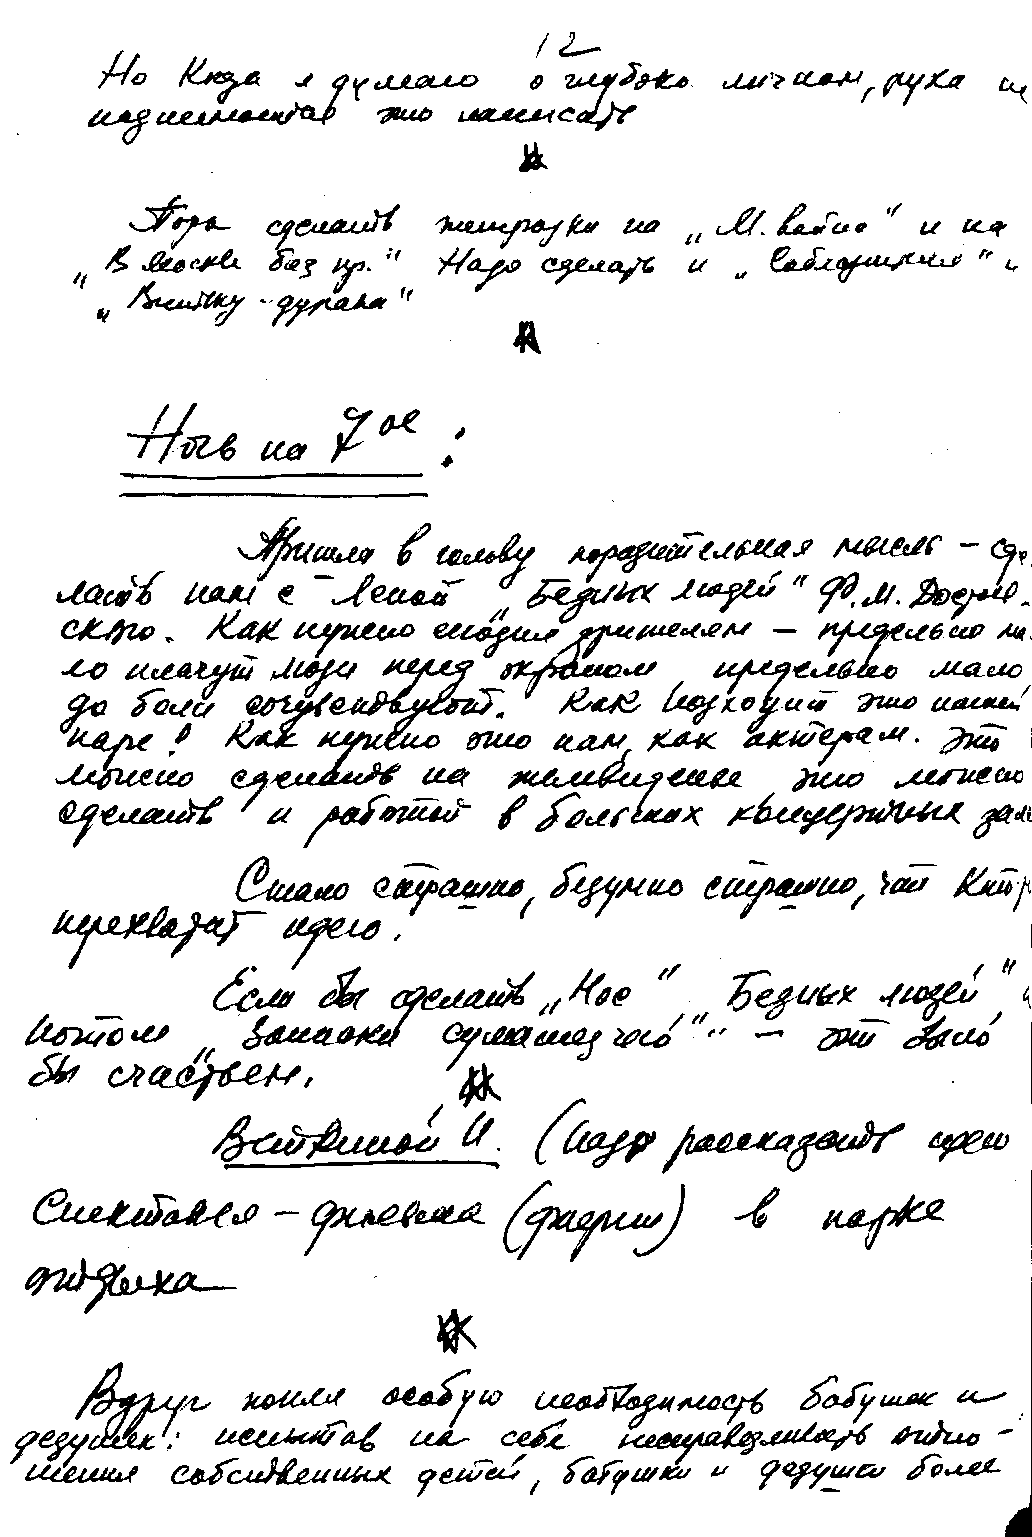 12
Но когда я думаю о глубоко личном, рука не
поднимается это написать
Пора сделать тетрадки на „М. война" и на
„В Москве баз пр." Надо сделать и „Соблазнителя" и
„ Ваньку - дурака"
Ночь на 7ое :
Пришла в голову поразительная мысль – сде
лать нам с Леной „Бедных людей" Ф.М. Достоев-
ского. Как нужно сегодня зрителям – предельно ма-
ло плачут люди перед экраном, предельно мало
до боли сочувствуют. Как подходит это нашей
паре! Как нужно это нам, как актерам. Это
можно сделать на телевиденье, это можно
сделать и работой в больших концертных зала
Стало страшно, безумно страшно, что кто-т
перехватят идею.
Если бы сделать „Нос", „Бедных людей" и
потом „Записки сумасшедшего" – я был
бы счастлив.
И. (надо рассказать идею
Спектакля – фильма (феерии) в парке
отдыха
Вдруг понял особую необходимость бабушек и
дедушек: испытав на себе несправедливость отно-
шения собственных детей, бабушки и дедушки более